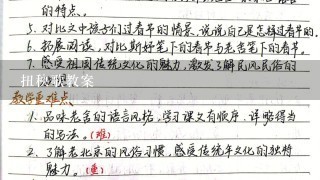 的特点。
5. 对比文中孩子们过春节的情景,说说自己是怎样过春节的。
6. 拓展阅读,对比斯妤笔下的春节与老舍笔下的春节。
7. 感受祖国传统文化的魅力,激发了解民风民俗的
扭秧歌教案
教学重难点、
1. 品味老舍的语言风格,学习课文有顺序、详略得当
的写法。(难)
2. 了解老北京的风俗习惯,感受传统年文化的独特
魅力。(重)